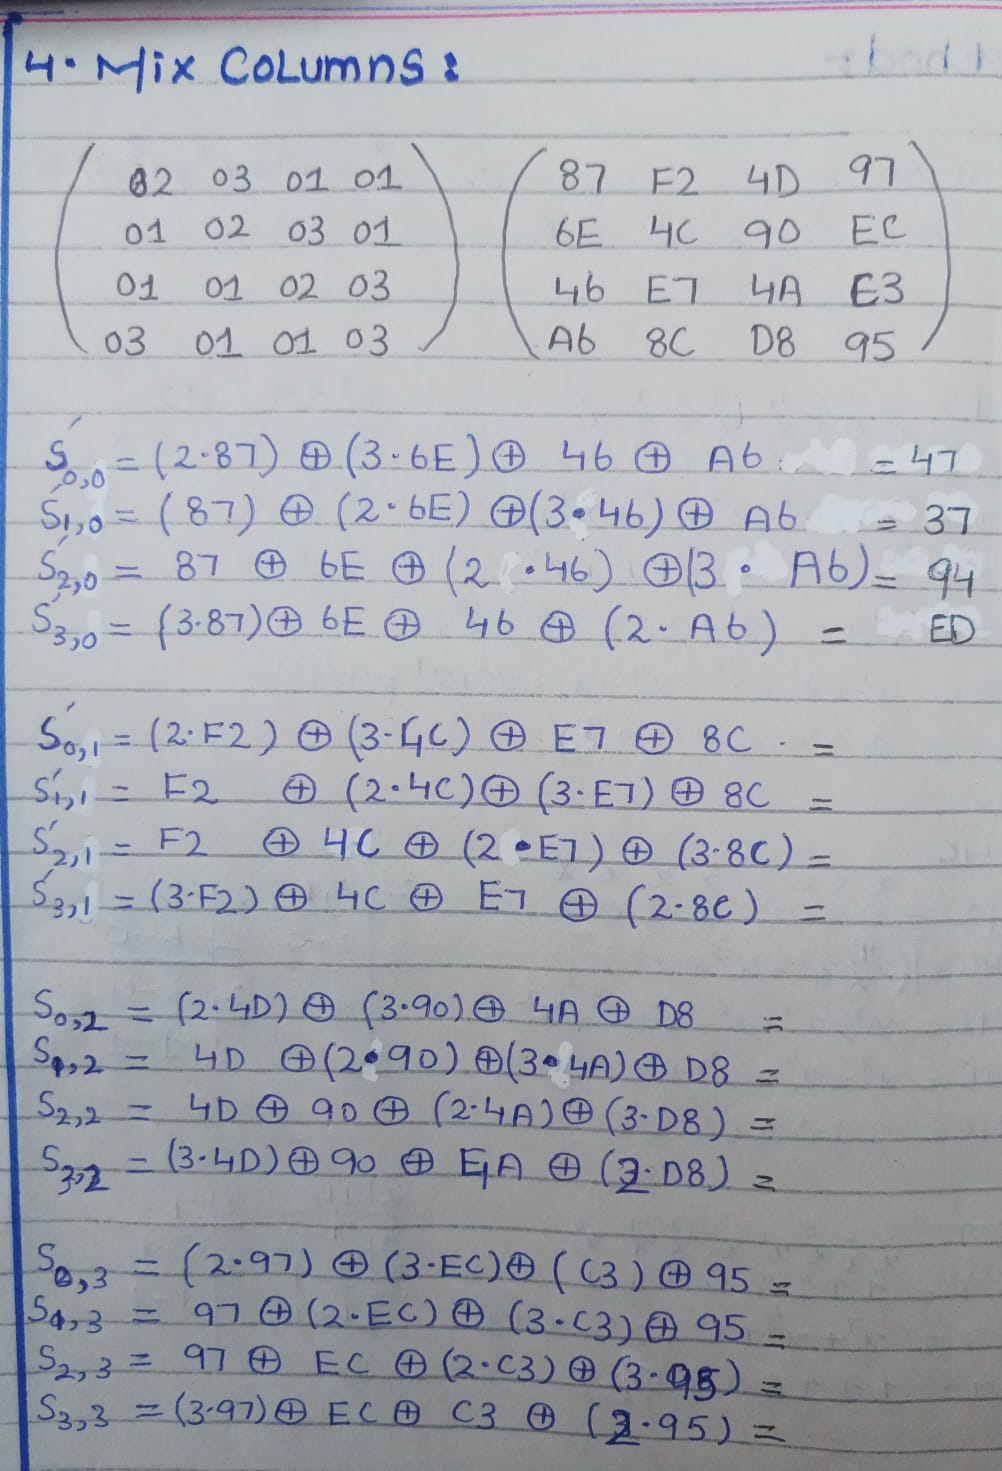 4. Mix Columns :
02 03 01 01 87 F2 4D 97
01 02 03 01 6E 4C 90 EC
01 01 02 03 46 E7 4A E3
03 01 01 03 A6 8C D8 95
S'0,0 = (2·87) ⊕ (3·6E) ⊕ 46 ⊕ A6 = 47
S'1,0 = (87) ⊕ (2·6E) ⊕ (3·46) ⊕ A6 = 37
S'2,0 = 87 ⊕ 6E ⊕ (2·46) ⊕ (3·A6) = 94
S'3,0 = (3·87) ⊕ 6E ⊕ 46 ⊕ (2·A6) = ED
S'0,1 = (2·F2) ⊕ (3·4C) ⊕ E7 ⊕ 8C =
S'1,1 = F2 ⊕ (2·4C) ⊕ (3·E7) ⊕ 8C =
S'2,1 = F2 ⊕ 4C ⊕ (2·E7) ⊕ (3·8C) =
S'3,1 = (3·F2) ⊕ 4C ⊕ E7 ⊕ (2·8C) =
S0,2 = (2·4D) ⊕ (3·90) ⊕ 4A ⊕ D8 =
S1,2 = 4D ⊕ (2·90) ⊕ (3·4A) ⊕ D8 =
S2,2 = 4D ⊕ 90 ⊕ (2·4A) ⊕ (3·D8) =
S3,2 = (3·4D) ⊕ 90 ⊕ 4A ⊕ (2·D8) =
S0,3 = (2·97) ⊕ (3·EC) ⊕ (C3) ⊕ 95 =
S1,3 = 97 ⊕ (2·EC) ⊕ (3·C3) ⊕ 95 =
S2,3 = 97 ⊕ EC ⊕ (2·C3) ⊕ (3·95) =
S3,3 = (3·97) ⊕ EC ⊕ C3 ⊕ (2·95) =